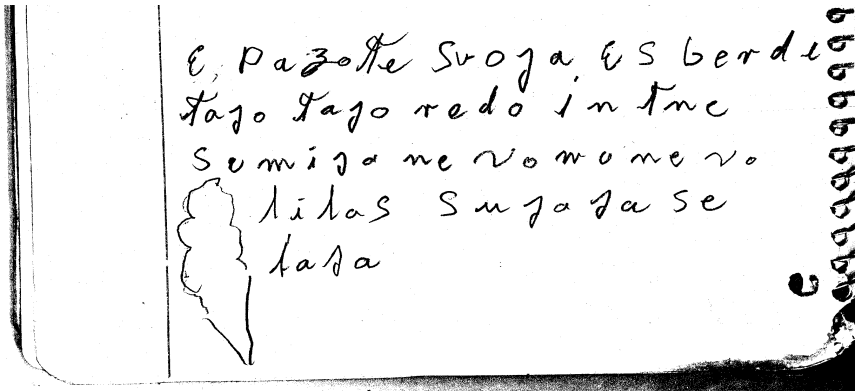 E, Pazote Svoja ES berde
tajo tajo redo in tne
semija ne vo mo ne vo
lilas su jaja se
laja